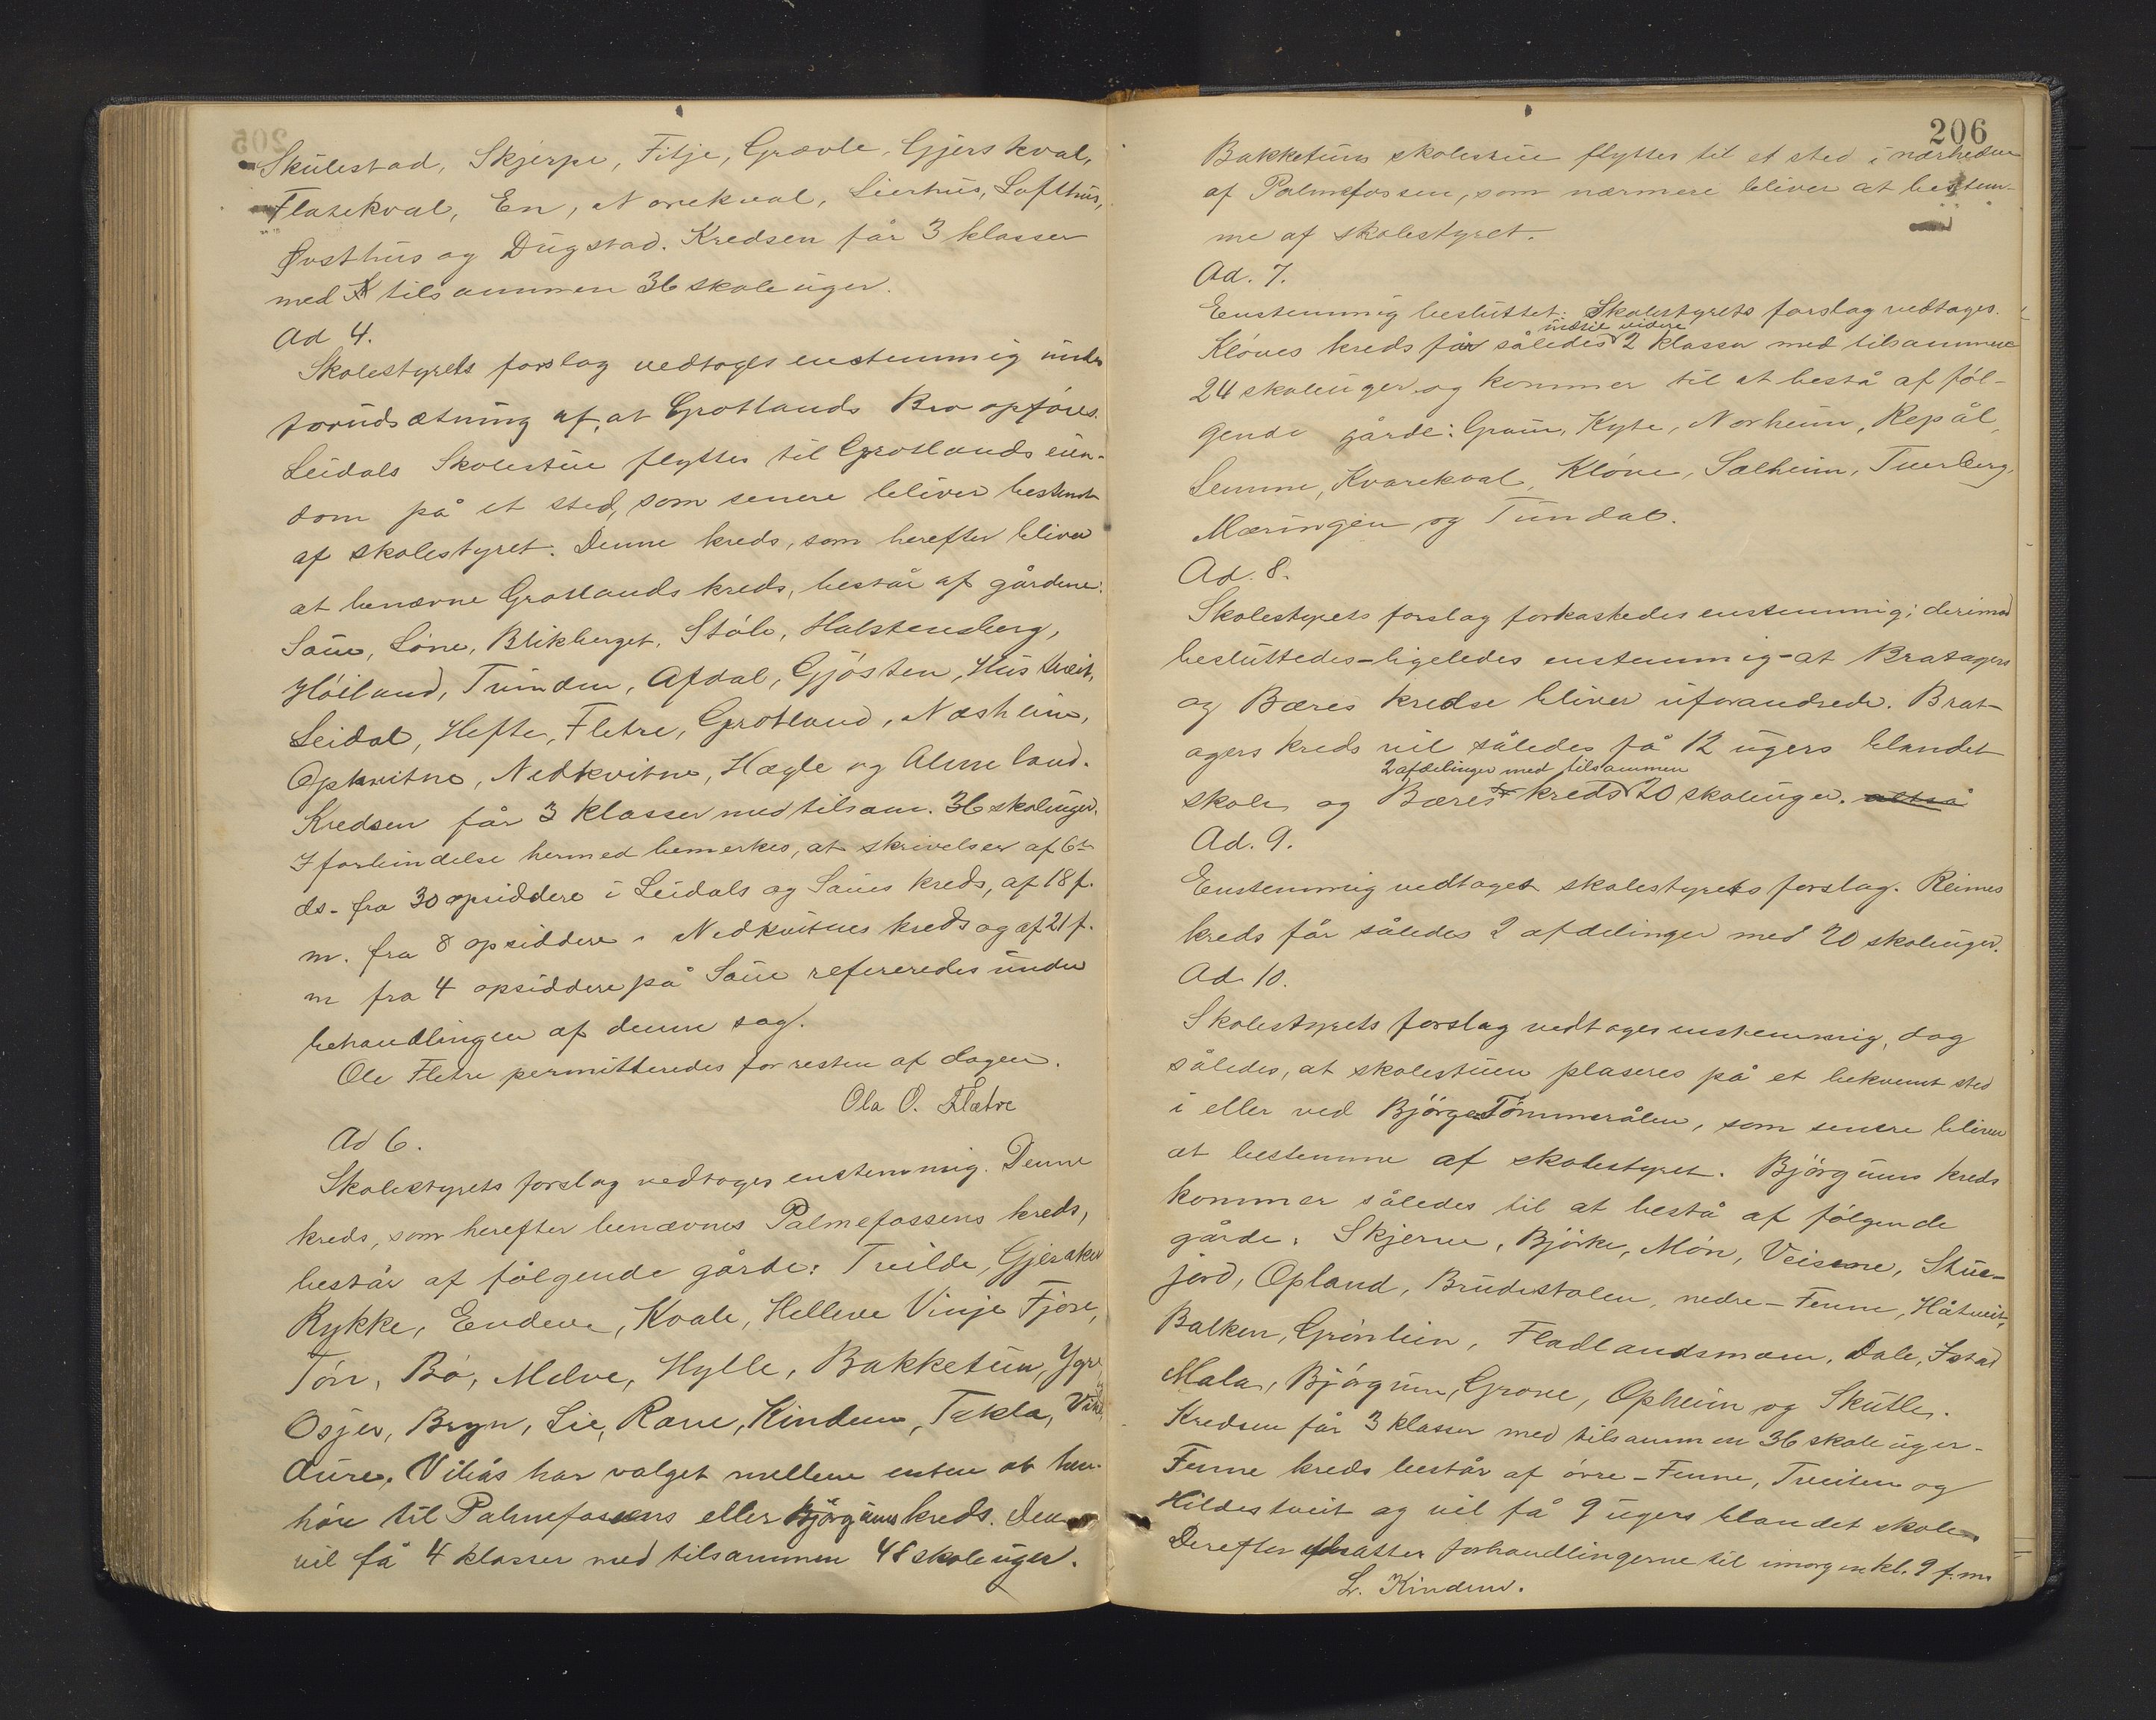 Skulestad, Skjerpe, Fitje, Grævle, Gjerskval,
Flatekval, En, Norekval, Liertun, Lofthus,
Øvsthus og Dugstad. Kredsen får 3 klasser
med tilsammen 36 skoleuger.
Ad 4.
Skolestyrets forslag vedtoges enstemmig under
forudsætning af, at Grotlands Bro opføres.
Leidals Skolestue flyttes til Grotlands eien-
dom på et sted, som senere bliver bestemt
af skolestyret. Denne kreds, som herefter bliver
at benævne Grotlands kreds, består af gårdene:
Saue, Løne, Blikberget, Støle, Halstensberg,
Høiland, Trinden, Afdal, Gjøsten, Hustveit,
Leidal, Hefte, Fletre, Grotland, Næsheim,
Opkvitne, Nedkvitne, Hægle og Almeland.
Kredsen får 3 klasser med tilsam. 36 skoleuger.
I forbindelse hermed bemerkes, at skrivelser af 6te
ds. fra 30 opsiddere i Leidals og Saues kreds, af 18 f.
m. fra 8 opsiddere i Nedkvitnes kreds og af 21 f.
m fra 4 opsiddere på Saue refereredes under
behandlingen af denne sag.
Ole Fletre permitteredes for resten af dagen.
Ola O. Flætre
Ad 6.
Skolestyrets forslag vedtoges enstemmig. Denne
kreds, som herefter benævnes Palmefossens kreds,
består af følgende gårde: Tvilde, Gjeraker
Rykke, Endeve, Kvale, Helleve Vinje Fjose,
Tøn, Bø, Melve, Hylle, Bakketun, Ygre,
Osjer, Bryn, Lie, Rave, Kindem, Tekla,
Aure. Vikås har valget mellem enten at hen-
høre til Palmefossens eller Bjørgums kreds. Den
vil få 4 klasser med tilsammen 48 skoleuger.
206
Bakketuns skolestue flyttes til et sted i nærheden
af Palmefossen, som nærmere bliver at bestem-
me af skolestyret.
Ad. 7.
Enstemmig besluttet: Skolestyrets forslag vedtages.
indtil videre
Kløves kreds får således 2 klasser med tilsammen
24 skoleuger og kommer til at bestå af føl-
gende gårde: Graue, Kyte, Norheim, Repål,
Lemme, Kvarekval, Kløve, Salheim, Tverberg,
Mæringen og Tundal.
Ad. 8.
Skolestyrets forslag forkastedes enstemmig; derimod
besluttedes - ligeledes enstemmig - at Bratagers
og Bæres kredse bliver uforandrede. Brat-
agers kreds vil således få 12 ugers blandet
2 afdelinger med tilsammen
skole og Bæres kreds 20 skoleuger. altså
Ad. 9.
Enstemmig vedtaget skolestyrets forslag. Reimes
kreds får således 2 afdelinger med 20 skoleuger.
Ad 10.
Skolestyrets forslag vedtoges enstemmig, dog
således, at skolestuen plaseres på et bekvemt sted
i eller ved Bjørge-Tømmerålen, som senere bliver
at bestemme af skolestyret. Bjørgums kreds
kommer således til at bestå af følgende
gårde: Skjerve, Bjørke, Møn, Veisene, Stue-
jord, Opland, Brudestolen, nedre-Fenne, Håtveit,
Balken, Grønlien, Fladlandsmoen, Dale, Istad
Mala, Bjørgum, Grove, Opheim og Skutle.
Kredsen får 3 klasser med tilsammen 36 skoleuger.
Fenne kreds består af øvre-Fenne, Tveiten og
Hildestveit og vil få 9 ugers blandet skole.
Derefter forhandlingerne til imorgen kl. 9 f.m.
L. Kindem.